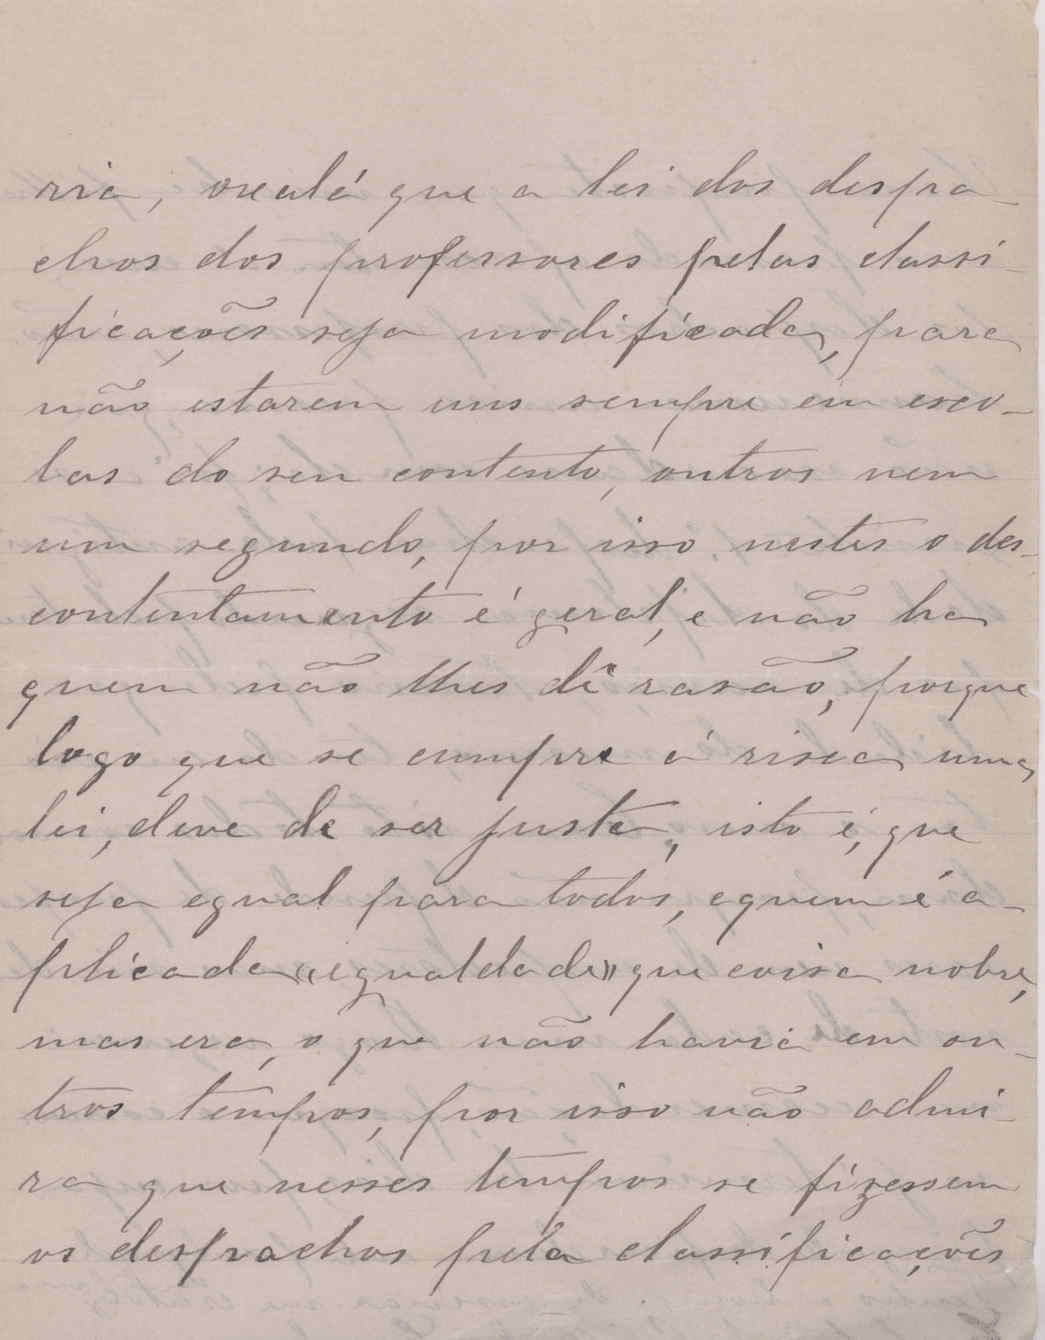 ria, oxalá que a lei dos despa-
chos dos professores pelas classi-
ficações seja modificada, para
não estarem uns sempre em esco-
las do seu contento, outros nem
um segundo, por isso nestes o des-
contentamento é geral, e não ha
quem não lhes dê rasão, porque
logo que se cumpre á risca uma
lei, deve de ser justa, isto é, que
seja egual para todos, e quem é a-
plicada «egualdade» que coisa nobre,
mas era, o que não havia em ou-
tros tempos, por isso não admi-
ra que nesses tempos se fizessem
os despachos pela classificações